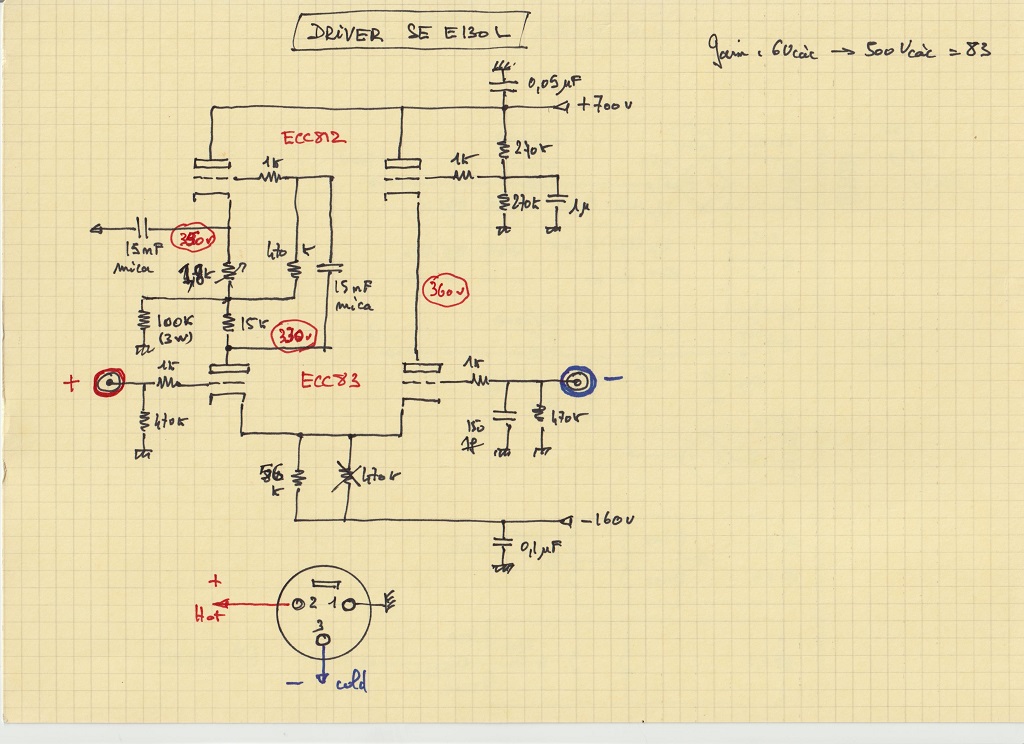 DRIVER SE E130L
gain : 6Vcàc → 500Vcàc = 83
0,05 µF
+700V
ECC812
1K
1K
270K
270K
1µ
15nF
mica
350V
470K
15nF
mica
360V
100K
(3W)
15K
330V
+
1K
ECC83
1K
−
470K
150
470K
56
K
470K
−160V
0,1µF
+
Hot
2 1
3
− cold